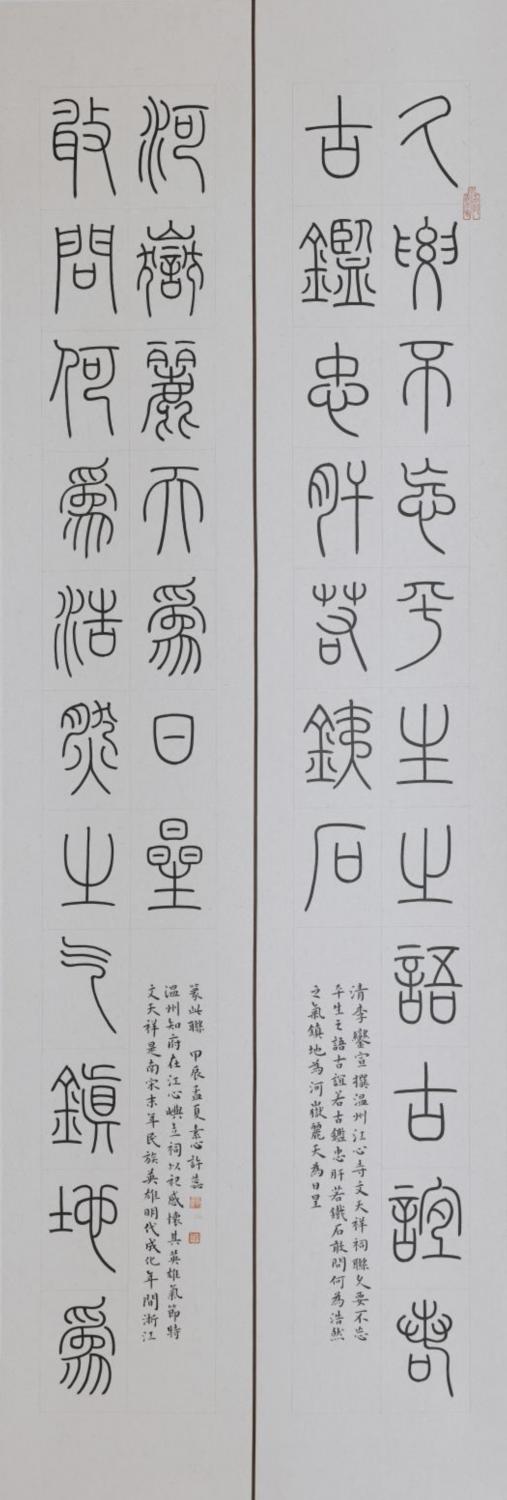 久要不忘平生之語古誼若
古鑑忠肝若銕石
清李鑾宣撰温州江心寺文天祥祠聯久要不忘
平生之語古誼若古鑑忠肝若鐵石敢問何為浩然
之氣鎮地為河嶽麗天為日星
敢問何為浩然之气鎮地為
河嶽麗天為日星
文天祥是南宋末年民族英雄明代成化年間浙江
温州知府在江心嶼立祠以祀感懷其英雄氣節特
篆此聯 甲辰孟夏素心許